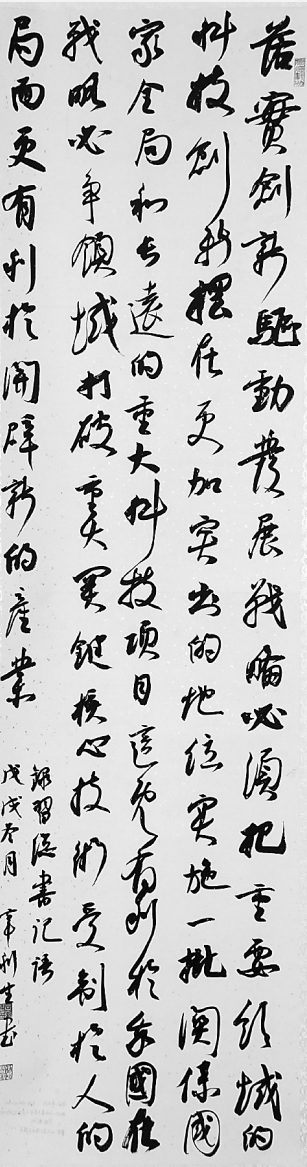 落實創新驅動發展戰略必須把重要領域的
科技創新擺在更加突出的地位實施一批關係國
家全局和長遠的重大科技項目這既有利於我國在
戰略必爭領域打破重大關鍵核心技術受制於人的
局面更有利於開辟新的產業
錄習總書記語
戊戌冬月